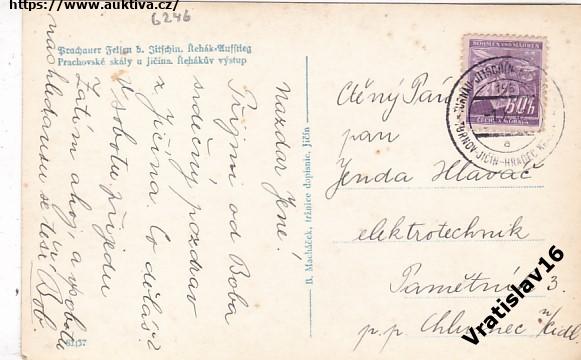 https://www.auktiva.cz/
6246
Prachauer Felsen b. Jitschin. Řehák-Aufstieg
Prachovské skály u Jičína. Řehákův výstup
Nazdar Jene!
Přijmi od Boba
srdečný pozdrav
z Jičína. Co děláš?
V sobotu přijedu
Zatím ahoj, a v sobotu
nashledanou se těší
Bob.
B. Macháček, tržnice dopisnic, Jičín
BÖHMEN UND MÄHREN
60 h
ČECHY A MORAVA
TURNAU-JITSCHIN
TURNOV-JIČÍN-HRADEC KR.
a
Ctěný Pán
pan
Jenda Hlaváč
elektrotechnik
Pamětník 3.
p.p. Chlumec n/Cidl.
Vratislav16